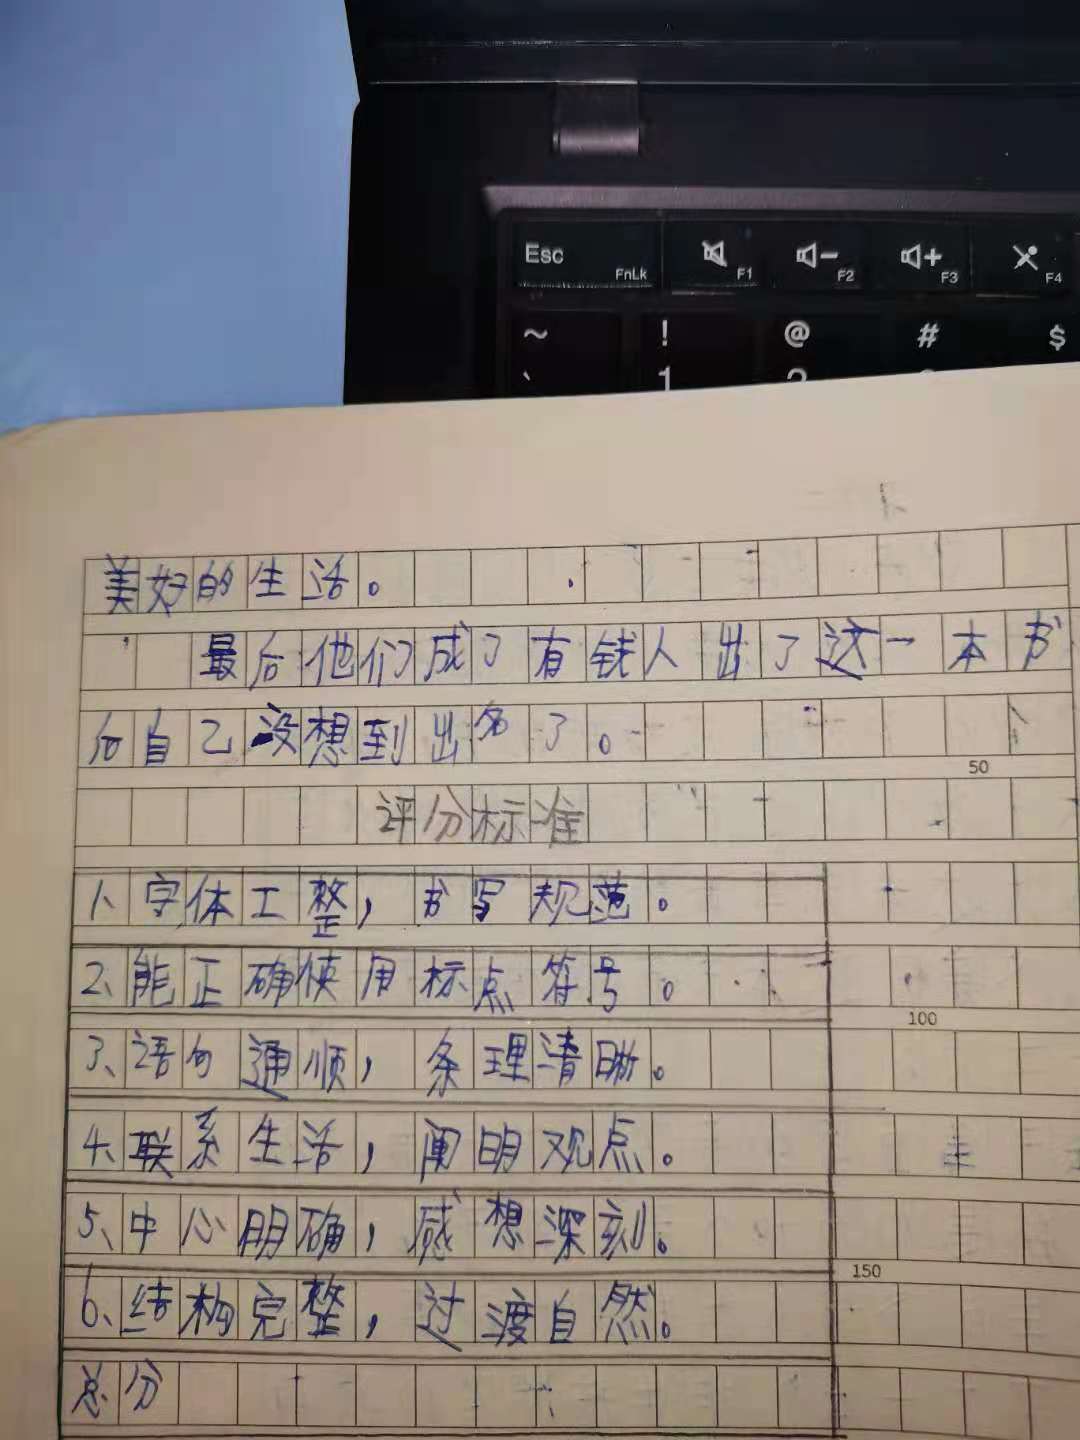 Esc FnLk F1 F2 F3 F4
~ ! @ # $
` 1 2
美好的生活。
最后他们成了有钱人出了这一本书
后自己没想到出名了。
50
评分标准
1、字体工整，书写规范。
2、能正确使用标点符号。
100
3、语句通顺，条理清晰。
4、联系生活，阐明观点。
5、中心明确，感想深刻。
150
6、结构完整，过渡自然。
总分